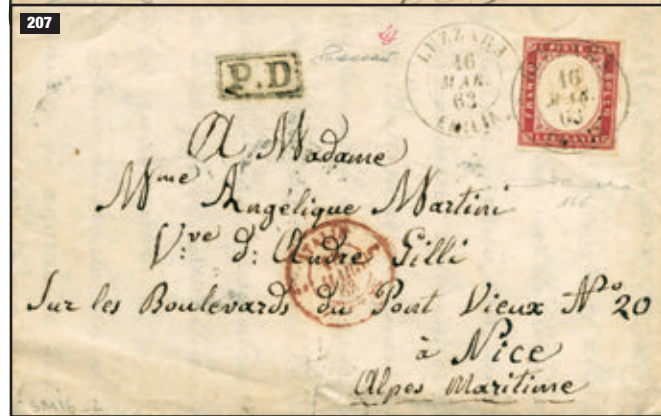 207
P.D
LUZZARA
16
MAR.
62
EMILIA
16
MAR.
62
FRANCO
BOLLO
A Madame
Mme Angélique Martini
Vve d: Andre Gilli
Sur les Boulevards du Pont Vieux No 20
à Nice
Alpes Maritime